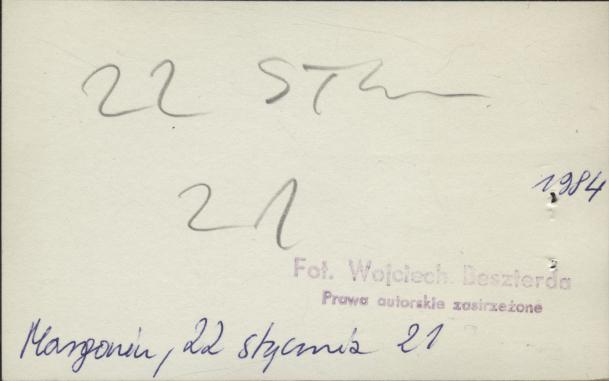 22 St
21
1984
Fot. Wojciech Beszterda
Prawa autorskie zastrzeżone
Margonin, 22 stycznia 21